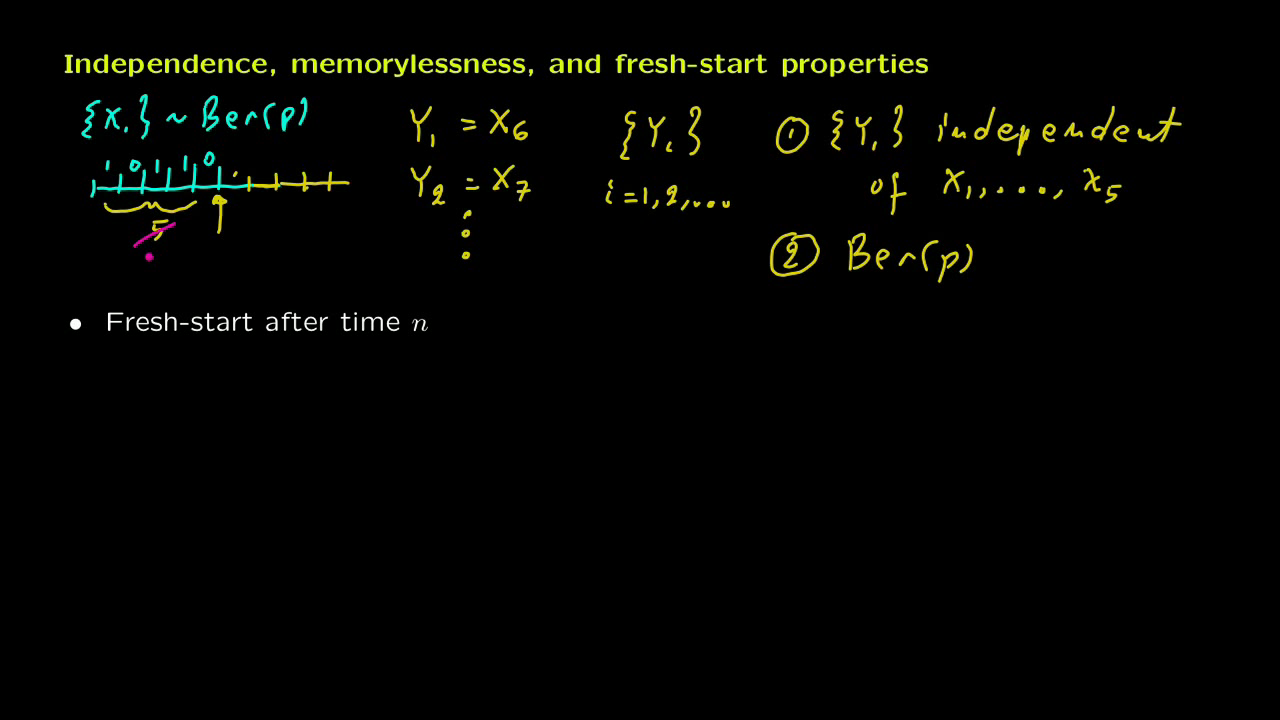 Independence, memorylessness, and fresh-start properties
{Xᵢ} ~ Ber(p)
1 0 1 1 0
5
Y₁ = X₆
Y₂ = X₇
⋮
{Yᵢ}
i = 1, 2, ...
① {Yᵢ} independent
of X₁, ..., X₅
② Ber(p)
• Fresh-start after time n